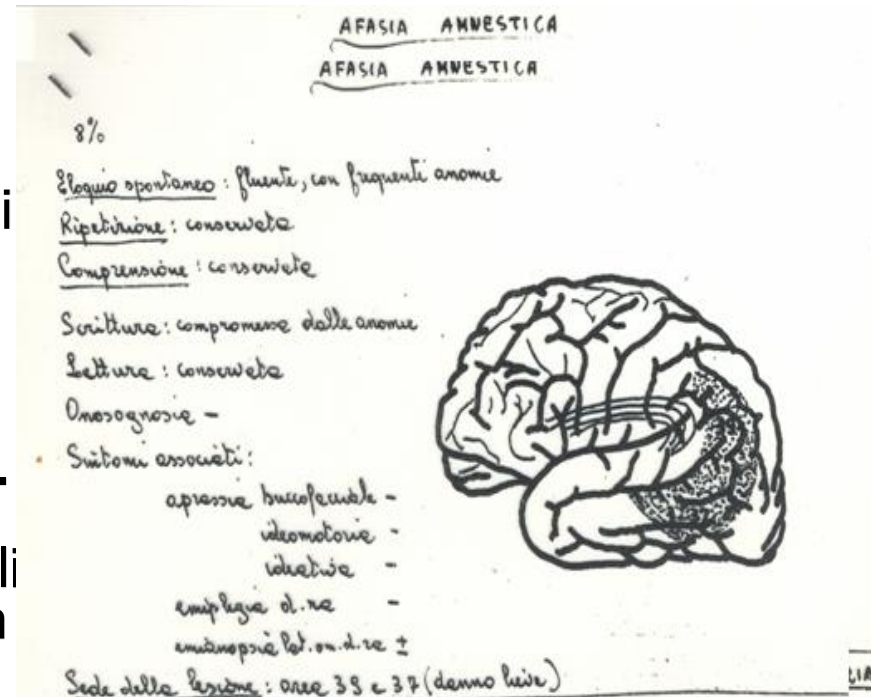 AFASIA AMNESTICA
AFASIA AMNESTICA
8%
Eloquio spontaneo: fluente, con frequenti anomie
Ripetizione: conservata
Comprensione: conservata
Scrittura: compromessa dalle anomie
Lettura: conservata
Anosognosia -
Sintomi associati:
aprassia buccofacciale -
ideomotoria -
ideativa -
emiplegia d.ra -
emianopsia lat. om. d.ra ±
Sede della lesione: area 39 e 37 (danno lieve)